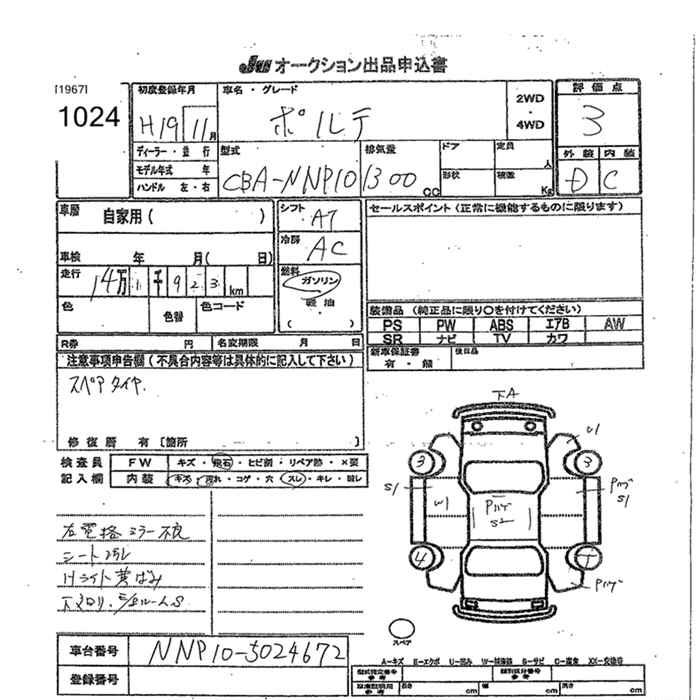 JU オークション出品申込書
[1967]
1024
初度登録年月
H19 11月
車名・グレード
ポルテ
2WD
・
4WD
評価点
3
ディーラー・並行
モデル年式 年
ハンドル 左・右
型式
CBA-NNP10
排気量
1300cc
ドア
形状
定員
人
積載
Kg
外装 内装
D C
車歴 自家用( )
シフト AT
セールスポイント(正常に機能するものに限ります)
冷房 AC
車検 年 月( 日)
走行 14万 1千 9 2 3 km
燃料
ガソリン
軽油
( )
色
色替
色コード
装備品(純正品に限り○を付けてください)
PS PW ABS エアB AW
SR ナビ TV カワ
R券 円 名変期限 月 日
新車保証書
有・無
後日品
注意事項申告欄(不具合内容等は具体的に記入して下さい)
スペアタイヤ.
修復歴 有 [箇所 ]
検査員
記入欄
FW キズ・飛石・ヒビ割・リペア跡・×要
内装 キズ・汚れ・コゲ・穴・スレ・キレ・割レ
左電格ミラー不良
シート汚レ
Hライト黄ばみ
下A
U1
3
3
S1
W1
Pハゲ
S2
Pハゲ
S1
4
Pハゲ
スペア
A-キズ E-エクボ U-凹み W-補修跡 S-サビ C-腐食 XX-交換済
車台番号 NNP10-5024672
登録番号
型式指定番号
参考
類別区分番号
参考
長さ cm 幅 cm 高さ cm